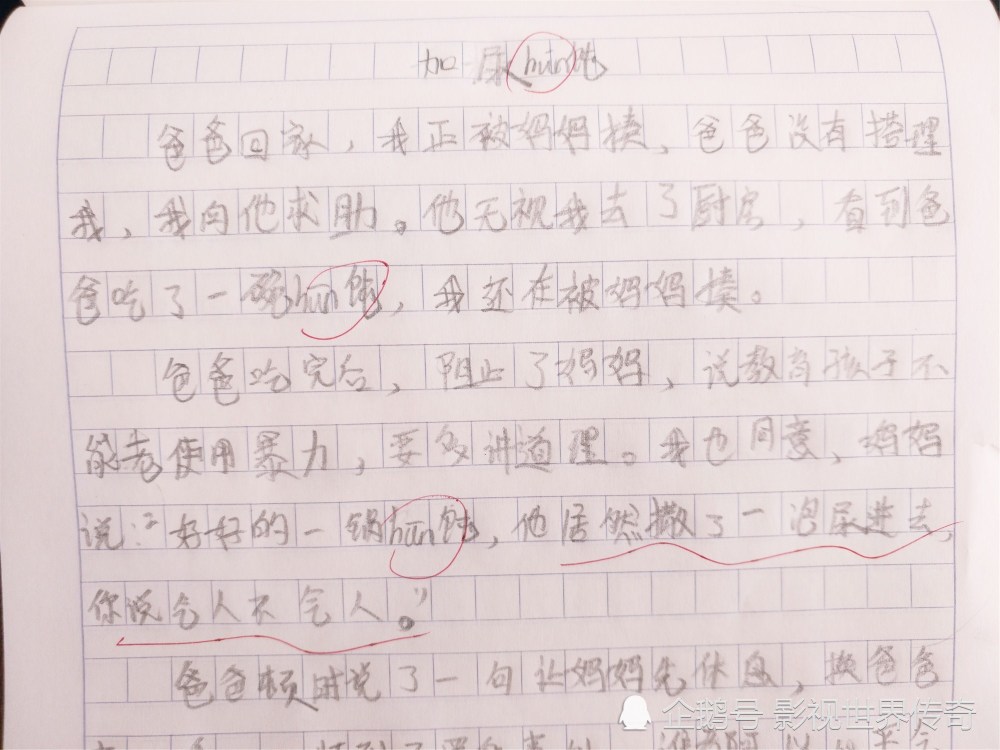 加尿hún饨
爸爸回家，我正被妈妈揍，爸爸没有搭理
我，我向他求助。他无视我去了厨房，看到爸
爸吃了一碗hún饨，我还在被妈妈揍。
爸爸吃完后，阻止了妈妈，说教育孩子不
能老使用暴力，要多讲道理。我也同意，妈妈
说：“好好的一锅hún饨，他居然撒了一泡尿进去，
你说气人不气人。”
爸爸顿时说了一句让妈妈先休息，换爸爸
企鹅号 影视世界传奇